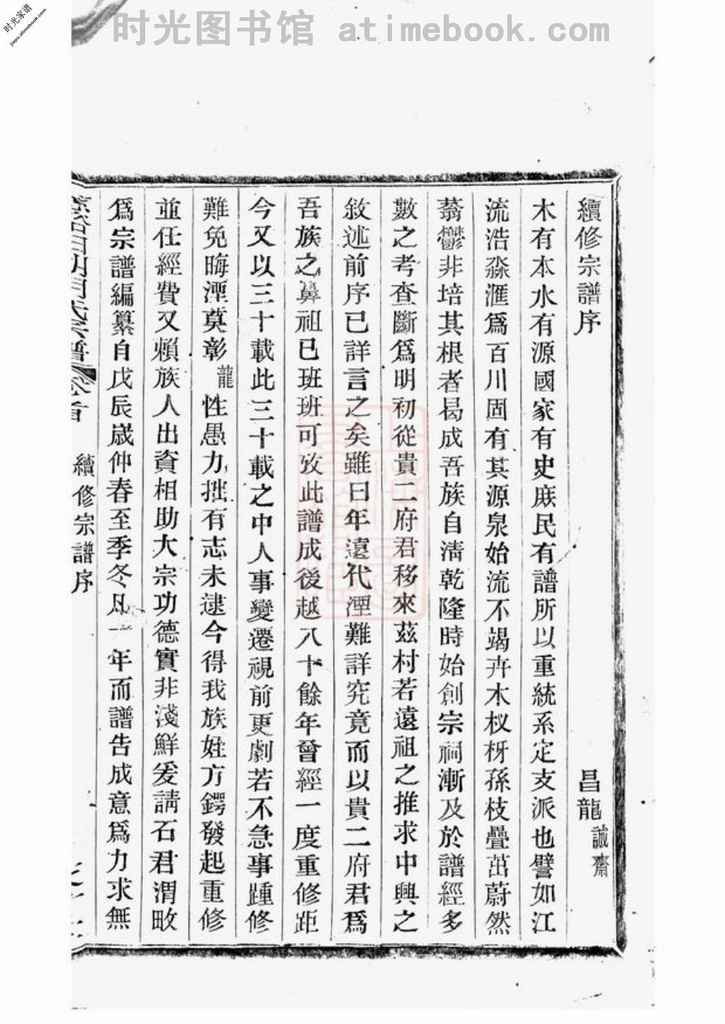 时光图书馆 atimebook.com
时光家谱
續修宗譜序
昌龍誠齋
木有本水有源國家有史庶民有譜所以重統系定支派也譬如江
流浩淼滙爲百川固有其源泉始流不竭卉木杈枒孫枝疊茁蔚然
蓊鬱非培其根者曷成吾族自淸乾隆時始創宗祠漸及於譜經多
數之考查斷爲明初從貴二府君移來茲村若遠祖之推求中興之
敘述前序已詳言之矣雖曰年遠代湮難詳究竟而以貴二府君爲
吾族之鼻祖已班班可攷此譜成後越八十餘年曾經一度重修距
今又以三十載此三十載之中人事變遷視前更劇若不急事踵修
難免晦湮莫彰龍性愚力拙有志未逮今得我族姓方鍔發起重修
並任經費又賴族人出資相助大宗功德實非淺鮮爰請石君渭畋
爲宗譜編纂自戊辰歲仲春至季冬凡一年而譜告成意爲力求無
氏宗譜 卷首 續修宗譜序